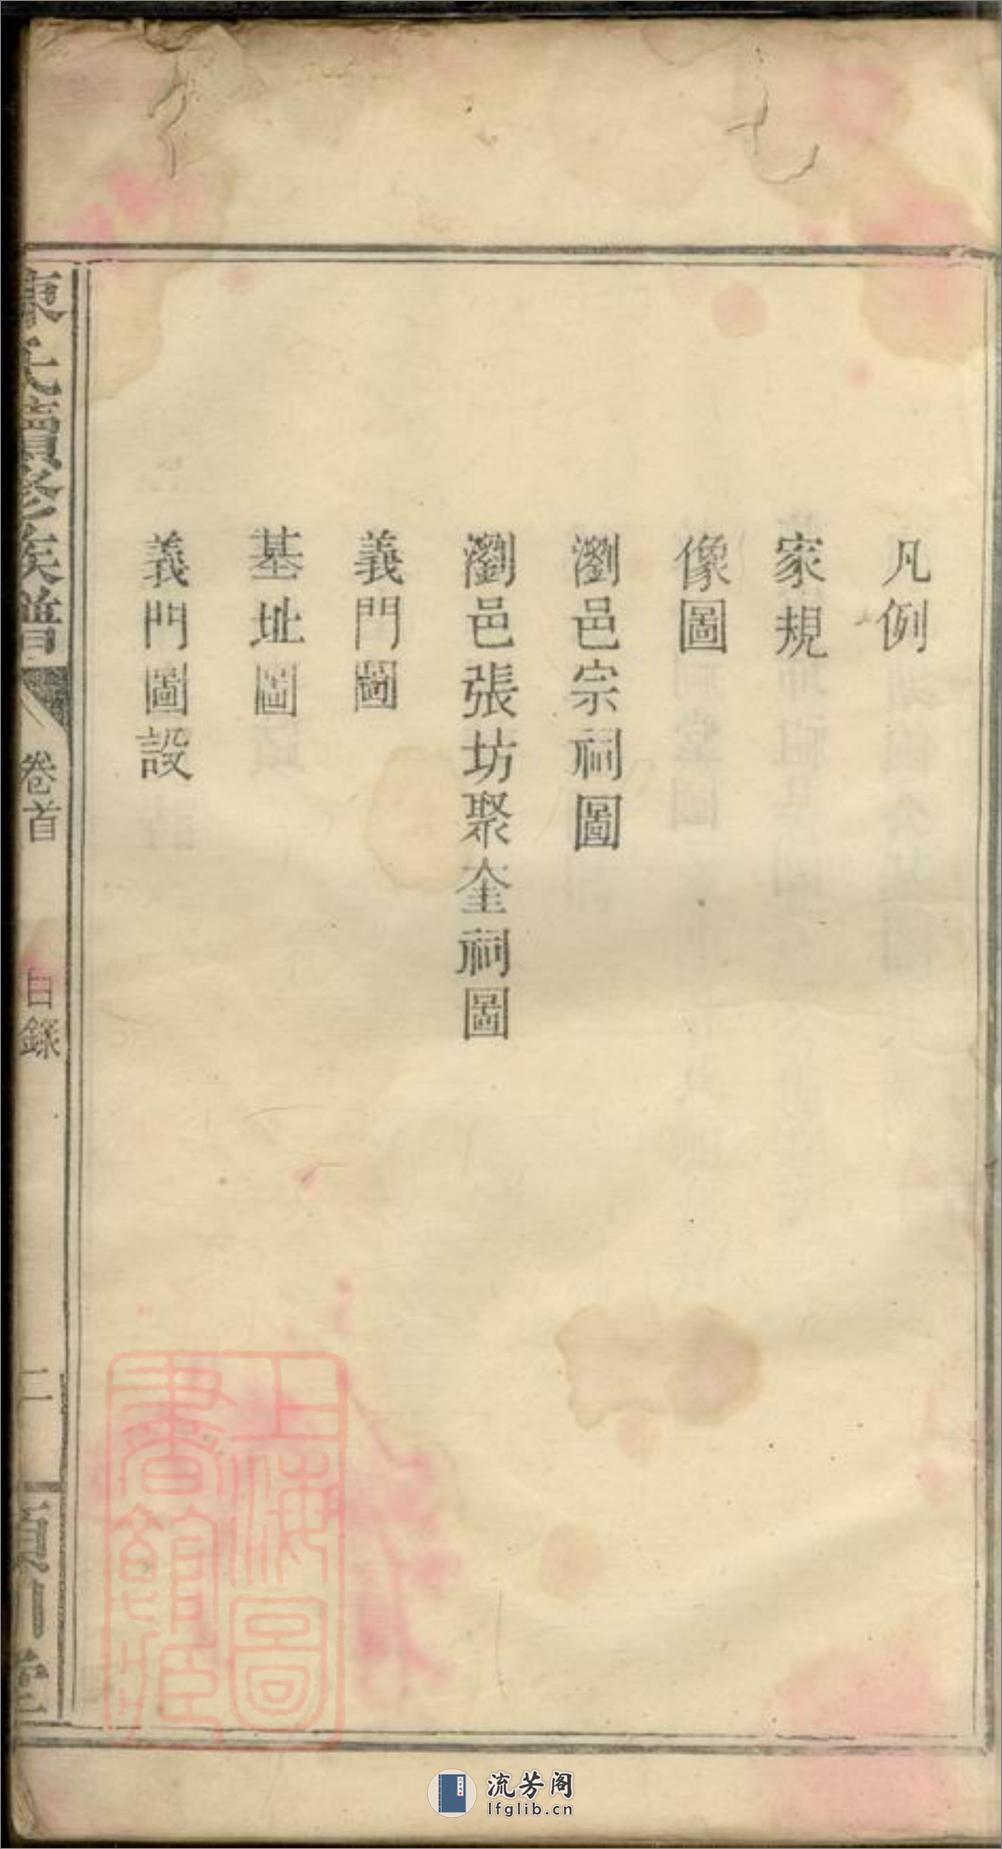 凡例
家規
像圖
瀏邑宗祠圖
瀏邑張坊聚奎祠圖
義門圖
基址圖
義門圖設
陳氏續修族譜
卷首
目錄
二
潁川堂
上海圖
書館藏
流芳阁
lfglib.cn